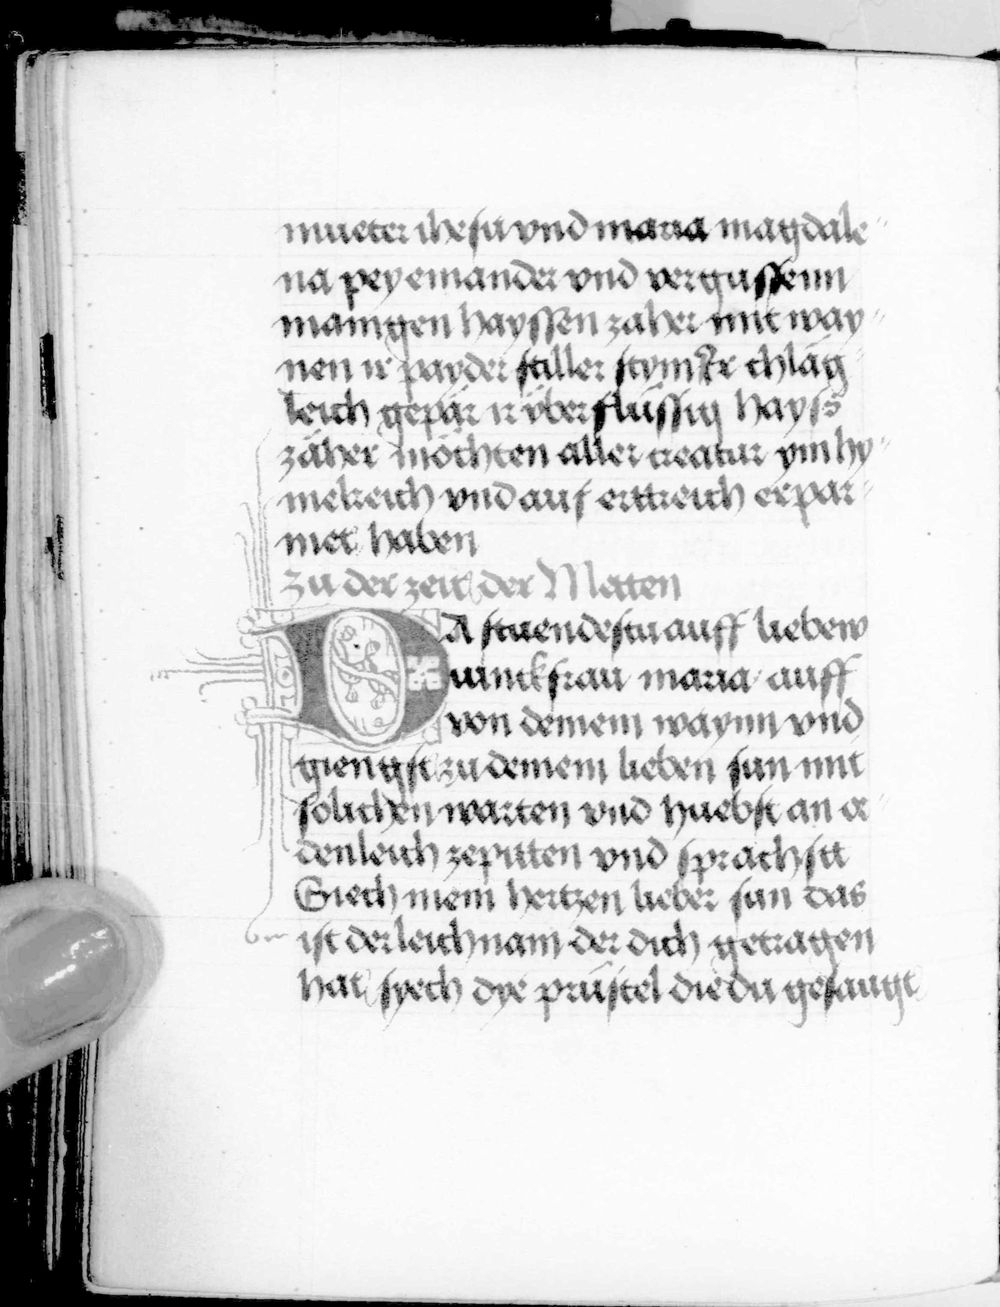 mueter ihesu vnd maria magdale„
na pey einander vnd vergussenn
manigen hayssen zaher mit way„
nen ir payder stiller chläg„
leich gepär ir überflüssig hayß
zäher möchten aller creatur ym hy„
melreich vnd auf erttreich erpar„
met haben
Zu der zeit der Metten
DA stuendestu auff liebew
iunckfrau maria auff
von deinem waynn vnd
giengst zu deinem lieben sun mit
solichen warten vnd huebst an or„
denleich zepitten vnd sprachstt
Siech mein hertzen lieber sun das
ist der leichnam der dich getragen
hat syech dye prüstel die du gesaugt